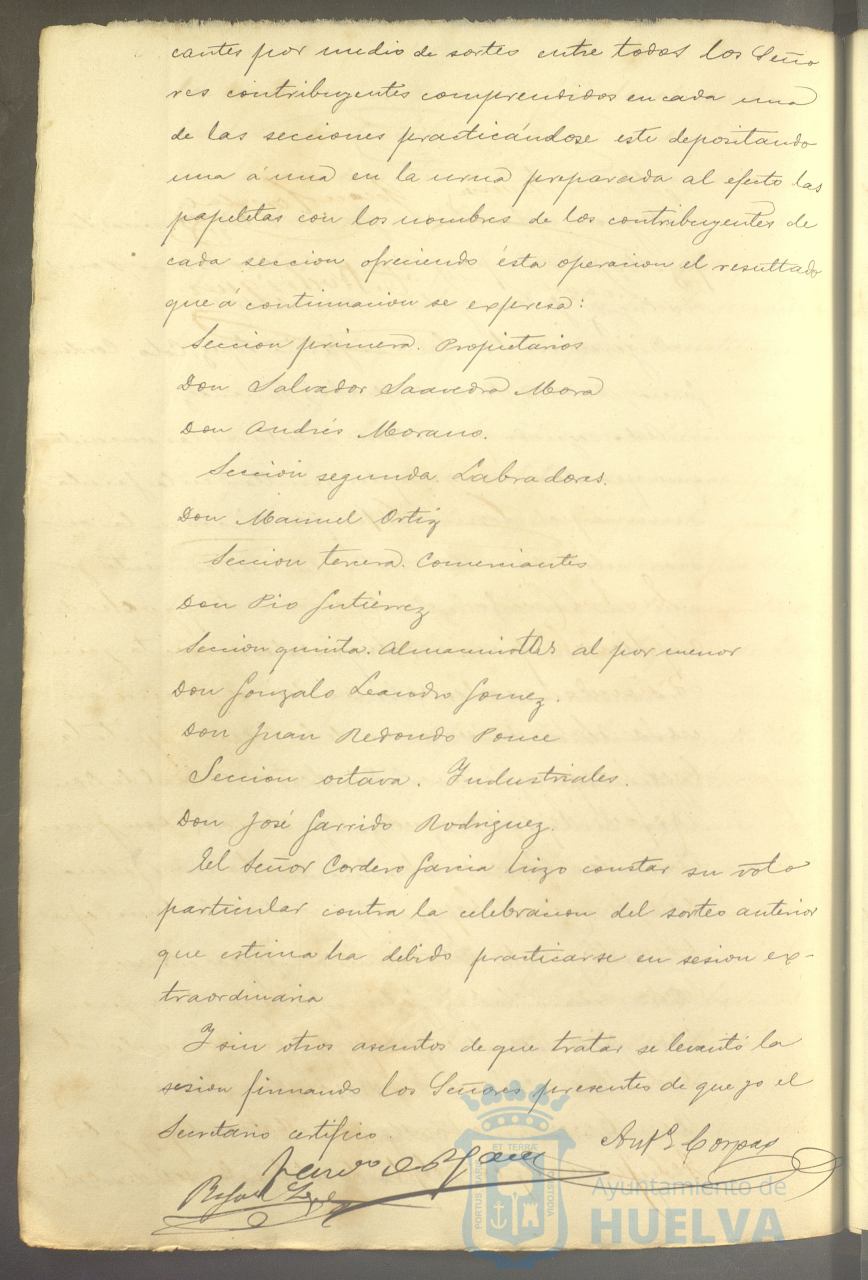 cantes por medio de sorteo entre todos los Seño
res contribuyentes comprendidos en cada una
de las secciones practicándose este depositando
una á una en la urna preparada al efecto las
papeletas con los nombres de los contribuyentes de
cada seccion ofreciendo ésta operacion el resultado
que á continuacion se expresa:
Seccion primera. Propietarios
Don Salvador Saavedra Mora
Don Andrés Morano.
Seccion segunda. Labradores.
Don Manuel Ortiz
Seccion tercera. Comerciantes
Don Pio Gutiérrez
Seccion quinta. Almacenistas al por menor
Don Gonzalo Leandro Gomez.
Don Juan Redondo Ponce
Seccion octava. Industriales.
Don José Garrido Rodriguez.
El Señor Cordero Garcia hizo constar su voto
particular contra la celebracion del sorteo anterior
que estima ha debido practicarse en sesion ex-
traordinaria
Y sin otros asuntos de que tratar se levantó la
sesion firmando los Señores presentes de que yo el
Secretario certifico.
Antº Corpas
PORTUS MARIS ET TERRÆ CUSTODIA
Ayuntamiento de
HUELVA